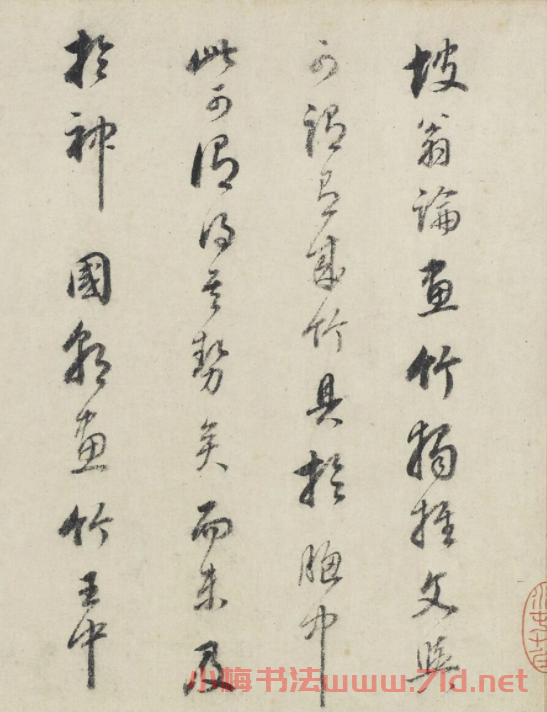 坡翁論畫竹獨推文與
可謂其成竹具於胸中
此可謂得其勢矣而未及
於神 國朝畫竹王中
小梅书法www.71d.net